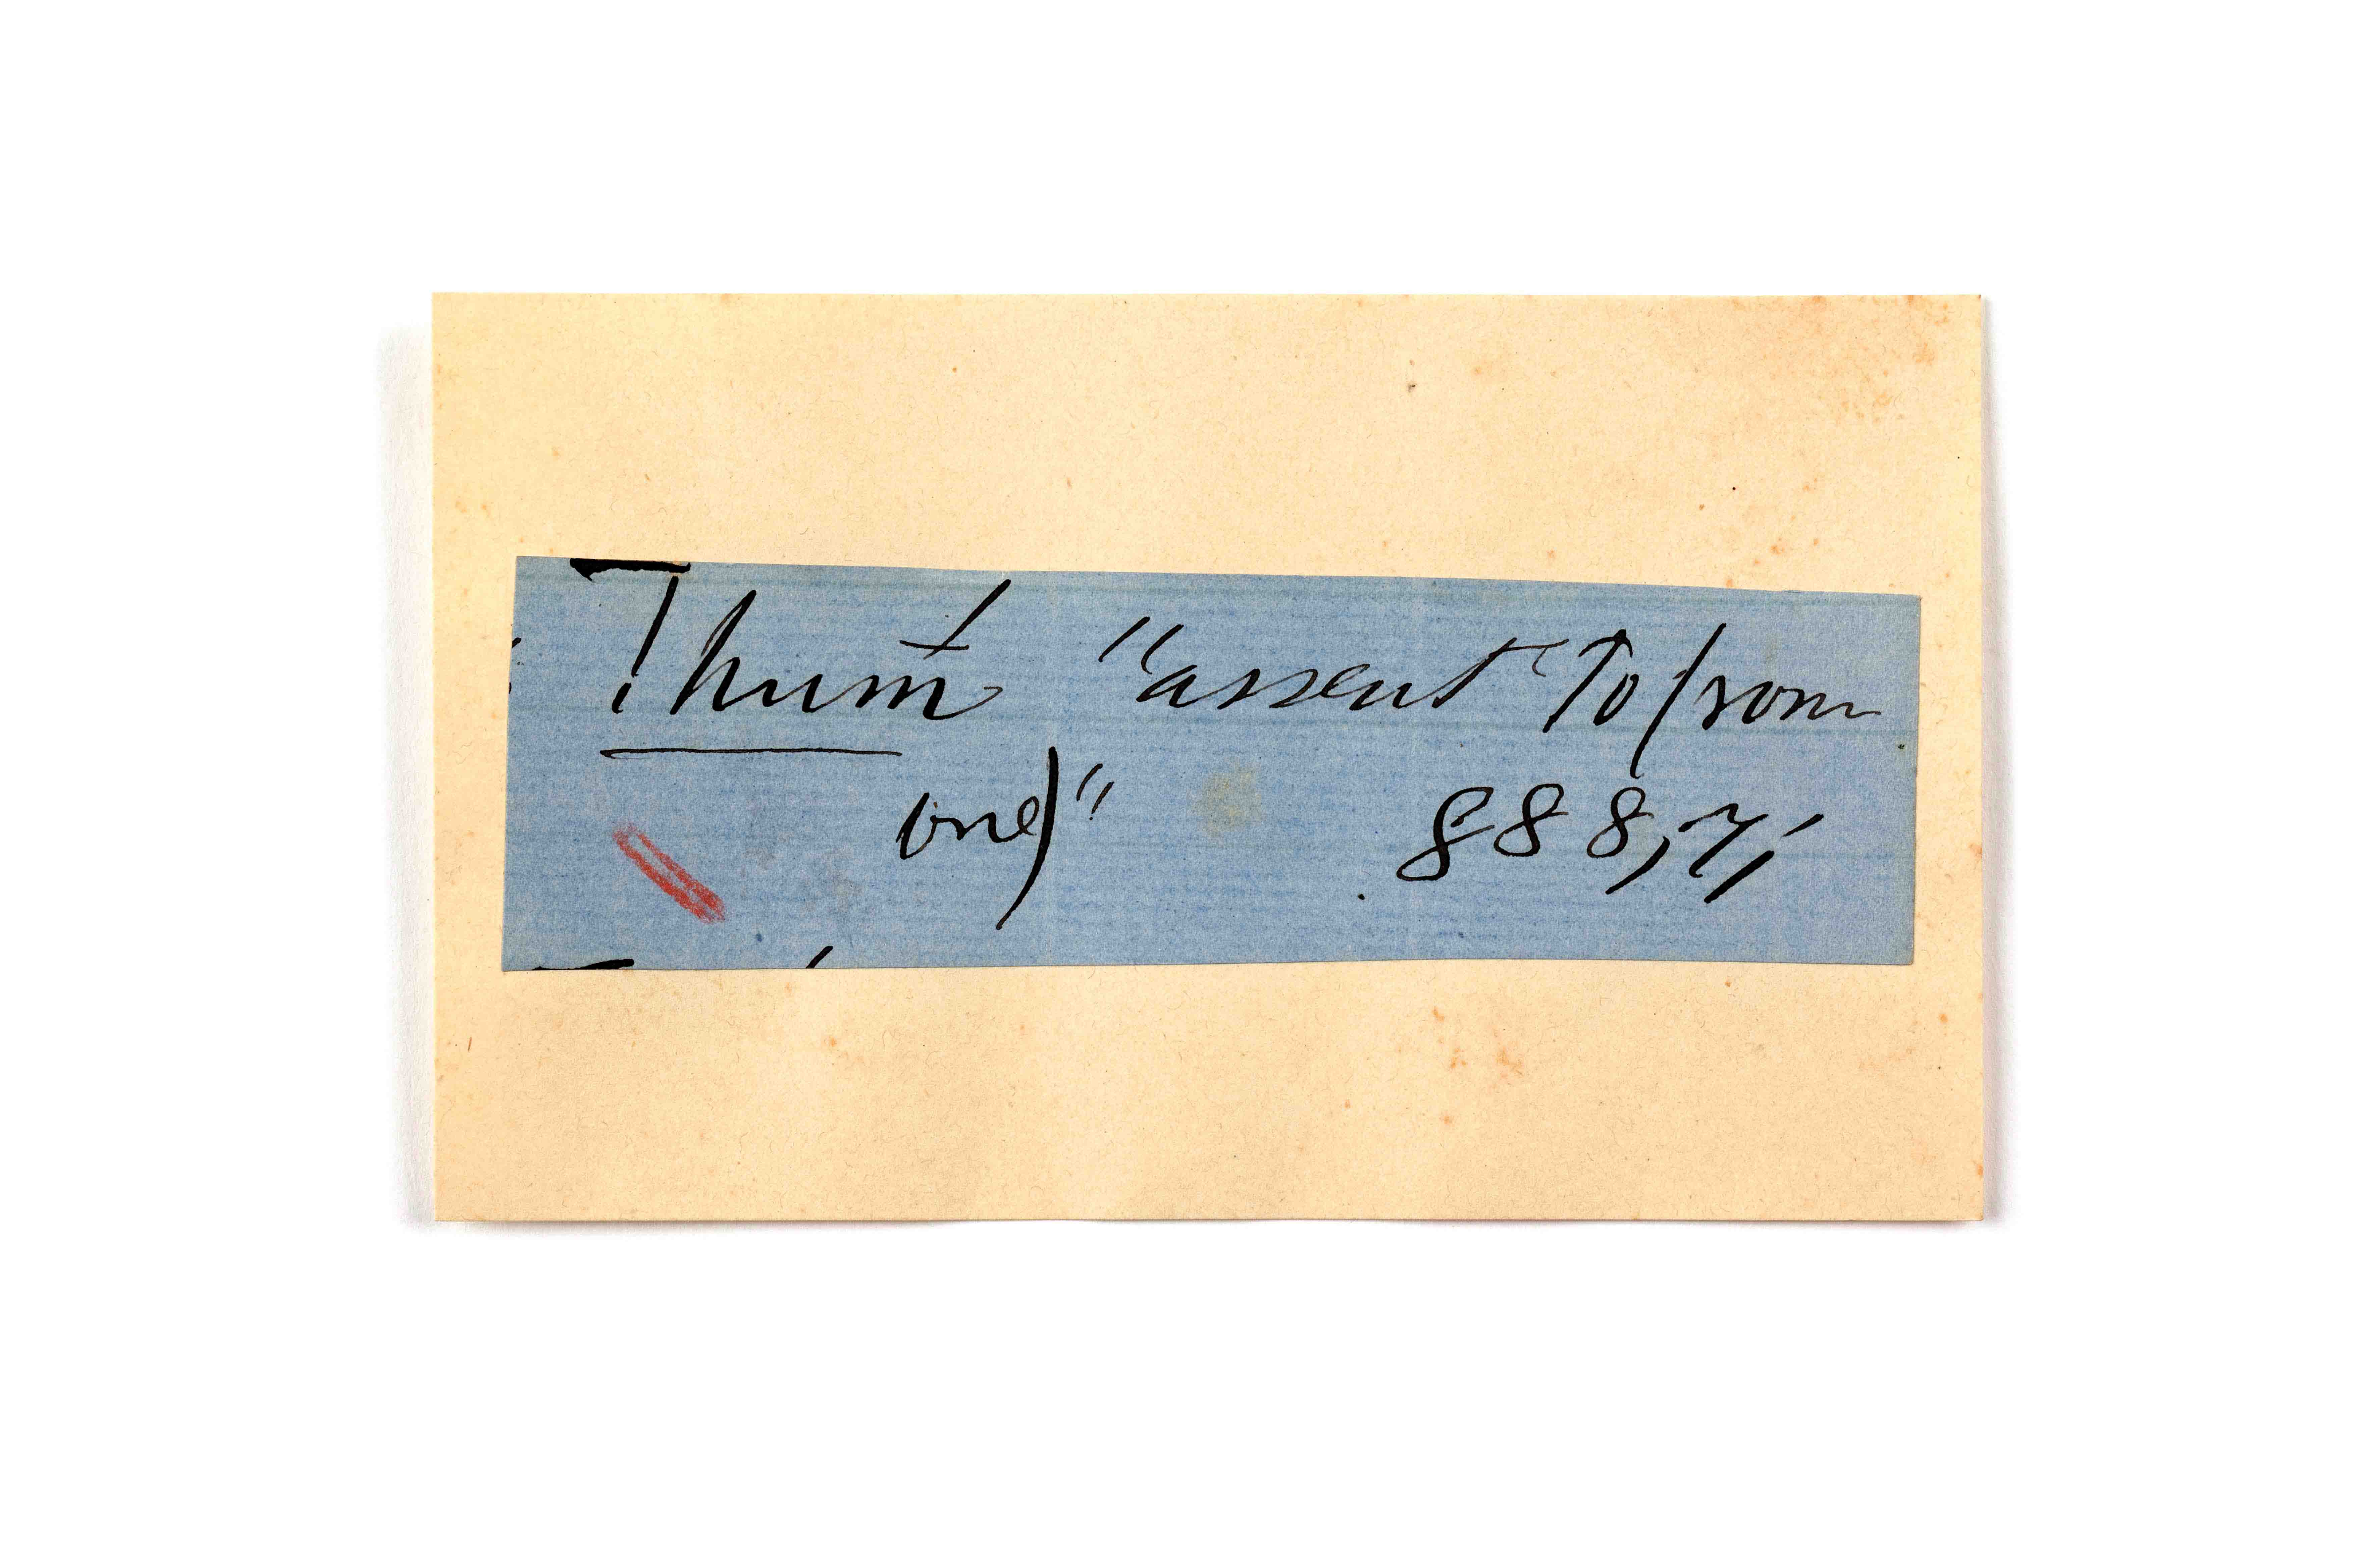 Thuḿ̄ "assent to (som
one)" 888,7,